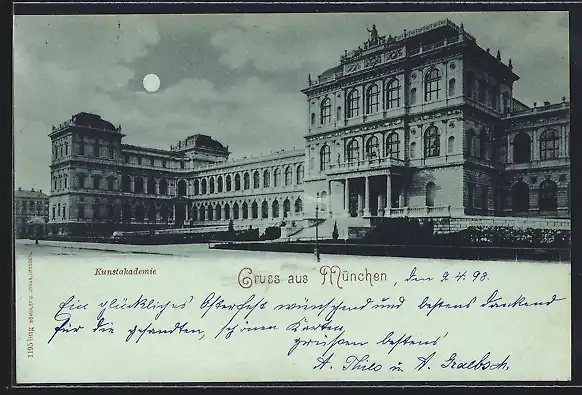 Kunstakademie
Gruss aus München, den 9.4.98.
Ein glückliches Osterfest wünschend und bestens dankend
für die gesandten, schönen Karten,
grüßen bestens
A. Thilo u. A.